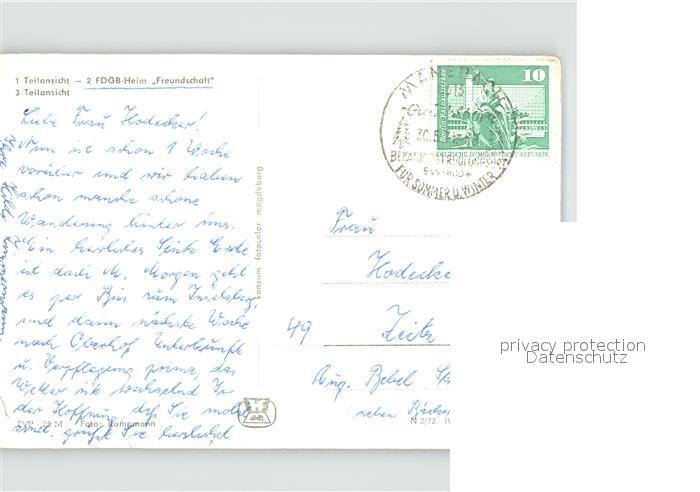 1 Teilansicht – 2 FDGB-Heim „Freundschaft"
3 Teilansicht
Liebe Frau Hodecker!
Nun ist schon 1 Woche
vorüber und wir haben
schon manche schöne
Wanderung hinter uns.
Ein herrliches Stück Erde
ist doch M. Morgen geht
es per Bus zum Inselsberg,
und dann nächste Woche
nach Oberhof. Unterkünfte
u. Verpflegung prima, das
Wetter ist wechselnd. In
der Hoffnung, daß Sie
grüßt Sie herzlichst
EVP -,25 M Foto: Kampmann
konsum fotocolor magdeburg
10
Berlin Rathausstraße
DEUTSCHE DEMOKRATISCHE REPUBLIK
MANEBACH
30.
BEKANNT ERHOLUNGSORT
FÜR SOMMER U. WINTER
Frau
Hodecke
49 Zeitz
Aug. Bebel
neben
N 2/72
privacy protection
Datenschutz